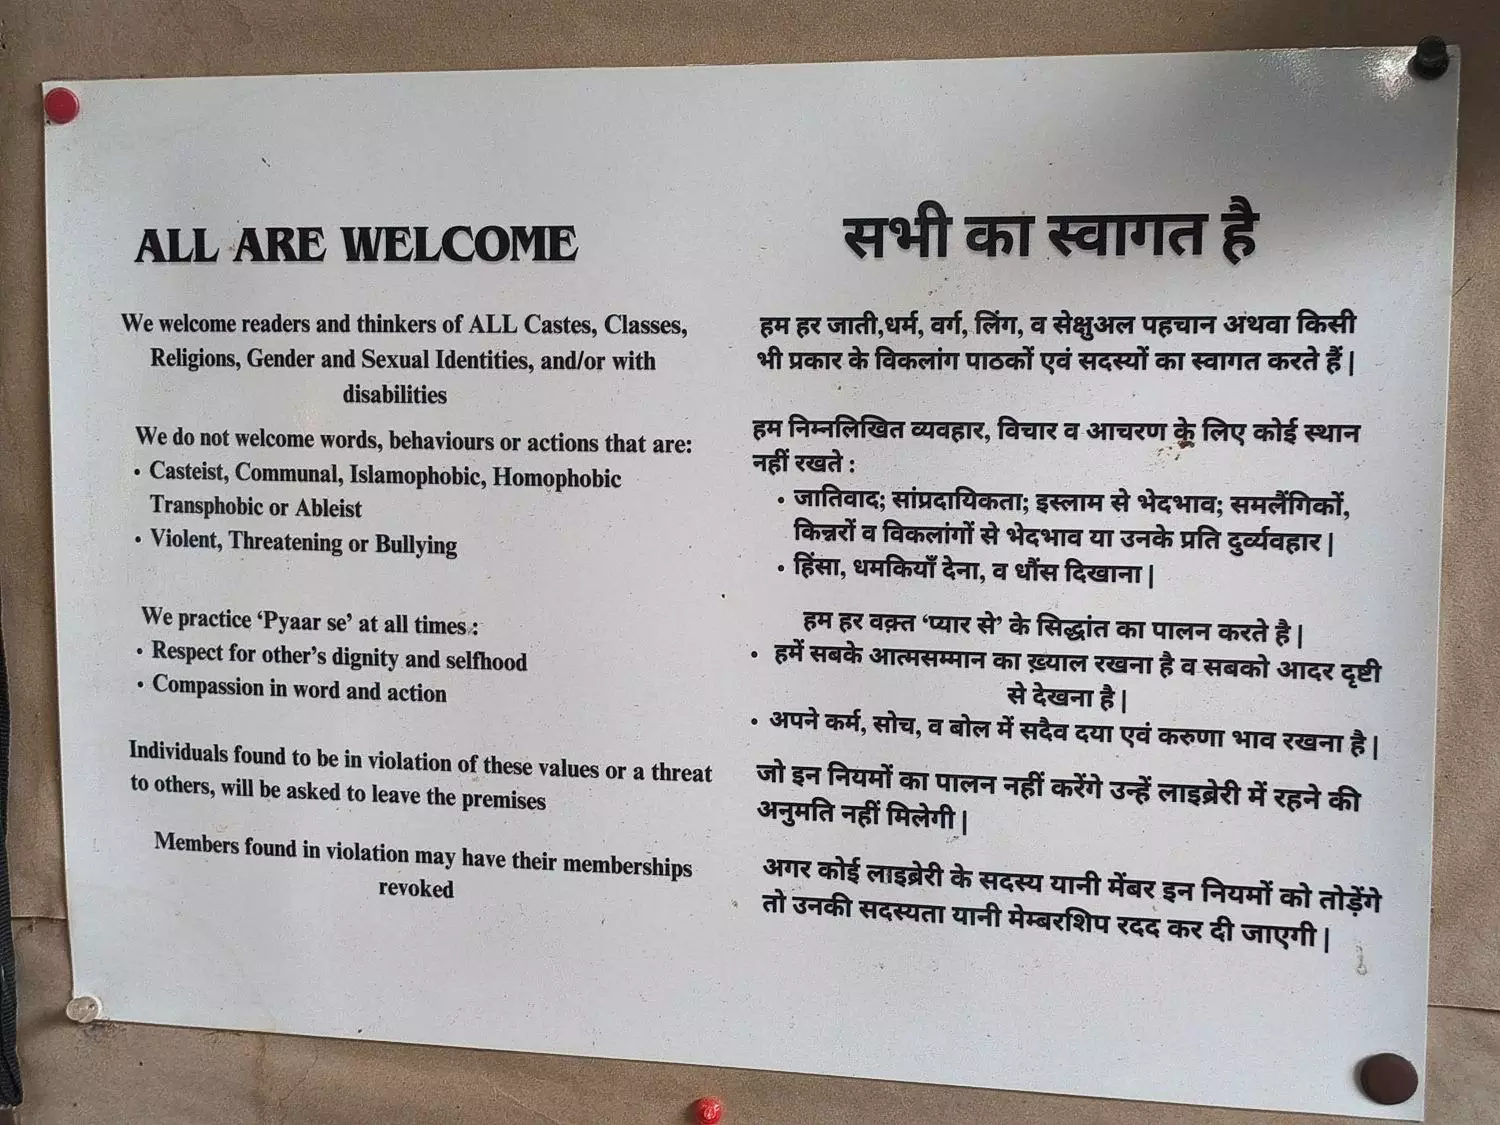 ALL ARE WELCOME
We welcome readers and thinkers of ALL Castes, Classes,
Religions, Gender and Sexual Identities, and/or with
disabilities
We do not welcome words, behaviours or actions that are:
• Casteist, Communal, Islamophobic, Homophobic
Transphobic or Ableist
• Violent, Threatening or Bullying
We practice ‘Pyaar se’ at all times :
• Respect for other’s dignity and selfhood
• Compassion in word and action
Individuals found to be in violation of these values or a threat
to others, will be asked to leave the premises
Members found in violation may have their memberships
revoked
सभी का स्वागत है
हम हर जाती,धर्म, वर्ग, लिंग, व सेक्षुअल पहचान अथवा किसी
भी प्रकार के विकलांग पाठकों एवं सदस्यों का स्वागत करते हैं |
हम निम्नलिखित व्यवहार, विचार व आचरण के लिए कोई स्थान
नहीं रखते :
• जातिवाद; सांप्रदायिकता; इस्लाम से भेदभाव; समलैंगिकों,
किन्नरों व विकलांगों से भेदभाव या उनके प्रति दुर्व्यवहार |
• हिंसा, धमकियाँ देना, व धौंस दिखाना |
हम हर वक़्त ‘प्यार से’ के सिद्धांत का पालन करते है |
• हमें सबके आत्मसम्मान का ख़्याल रखना है व सबको आदर दृष्टी
से देखना है |
• अपने कर्म, सोच, व बोल में सदैव दया एवं करुणा भाव रखना है |
जो इन नियमों का पालन नहीं करेंगे उन्हें लाइब्रेरी में रहने की
अनुमति नहीं मिलेगी |
अगर कोई लाइब्रेरी के सदस्य यानी मेंबर इन नियमों को तोड़ेंगे
तो उनकी सदस्यता यानी मेम्बरशिप रदद कर दी जाएगी |